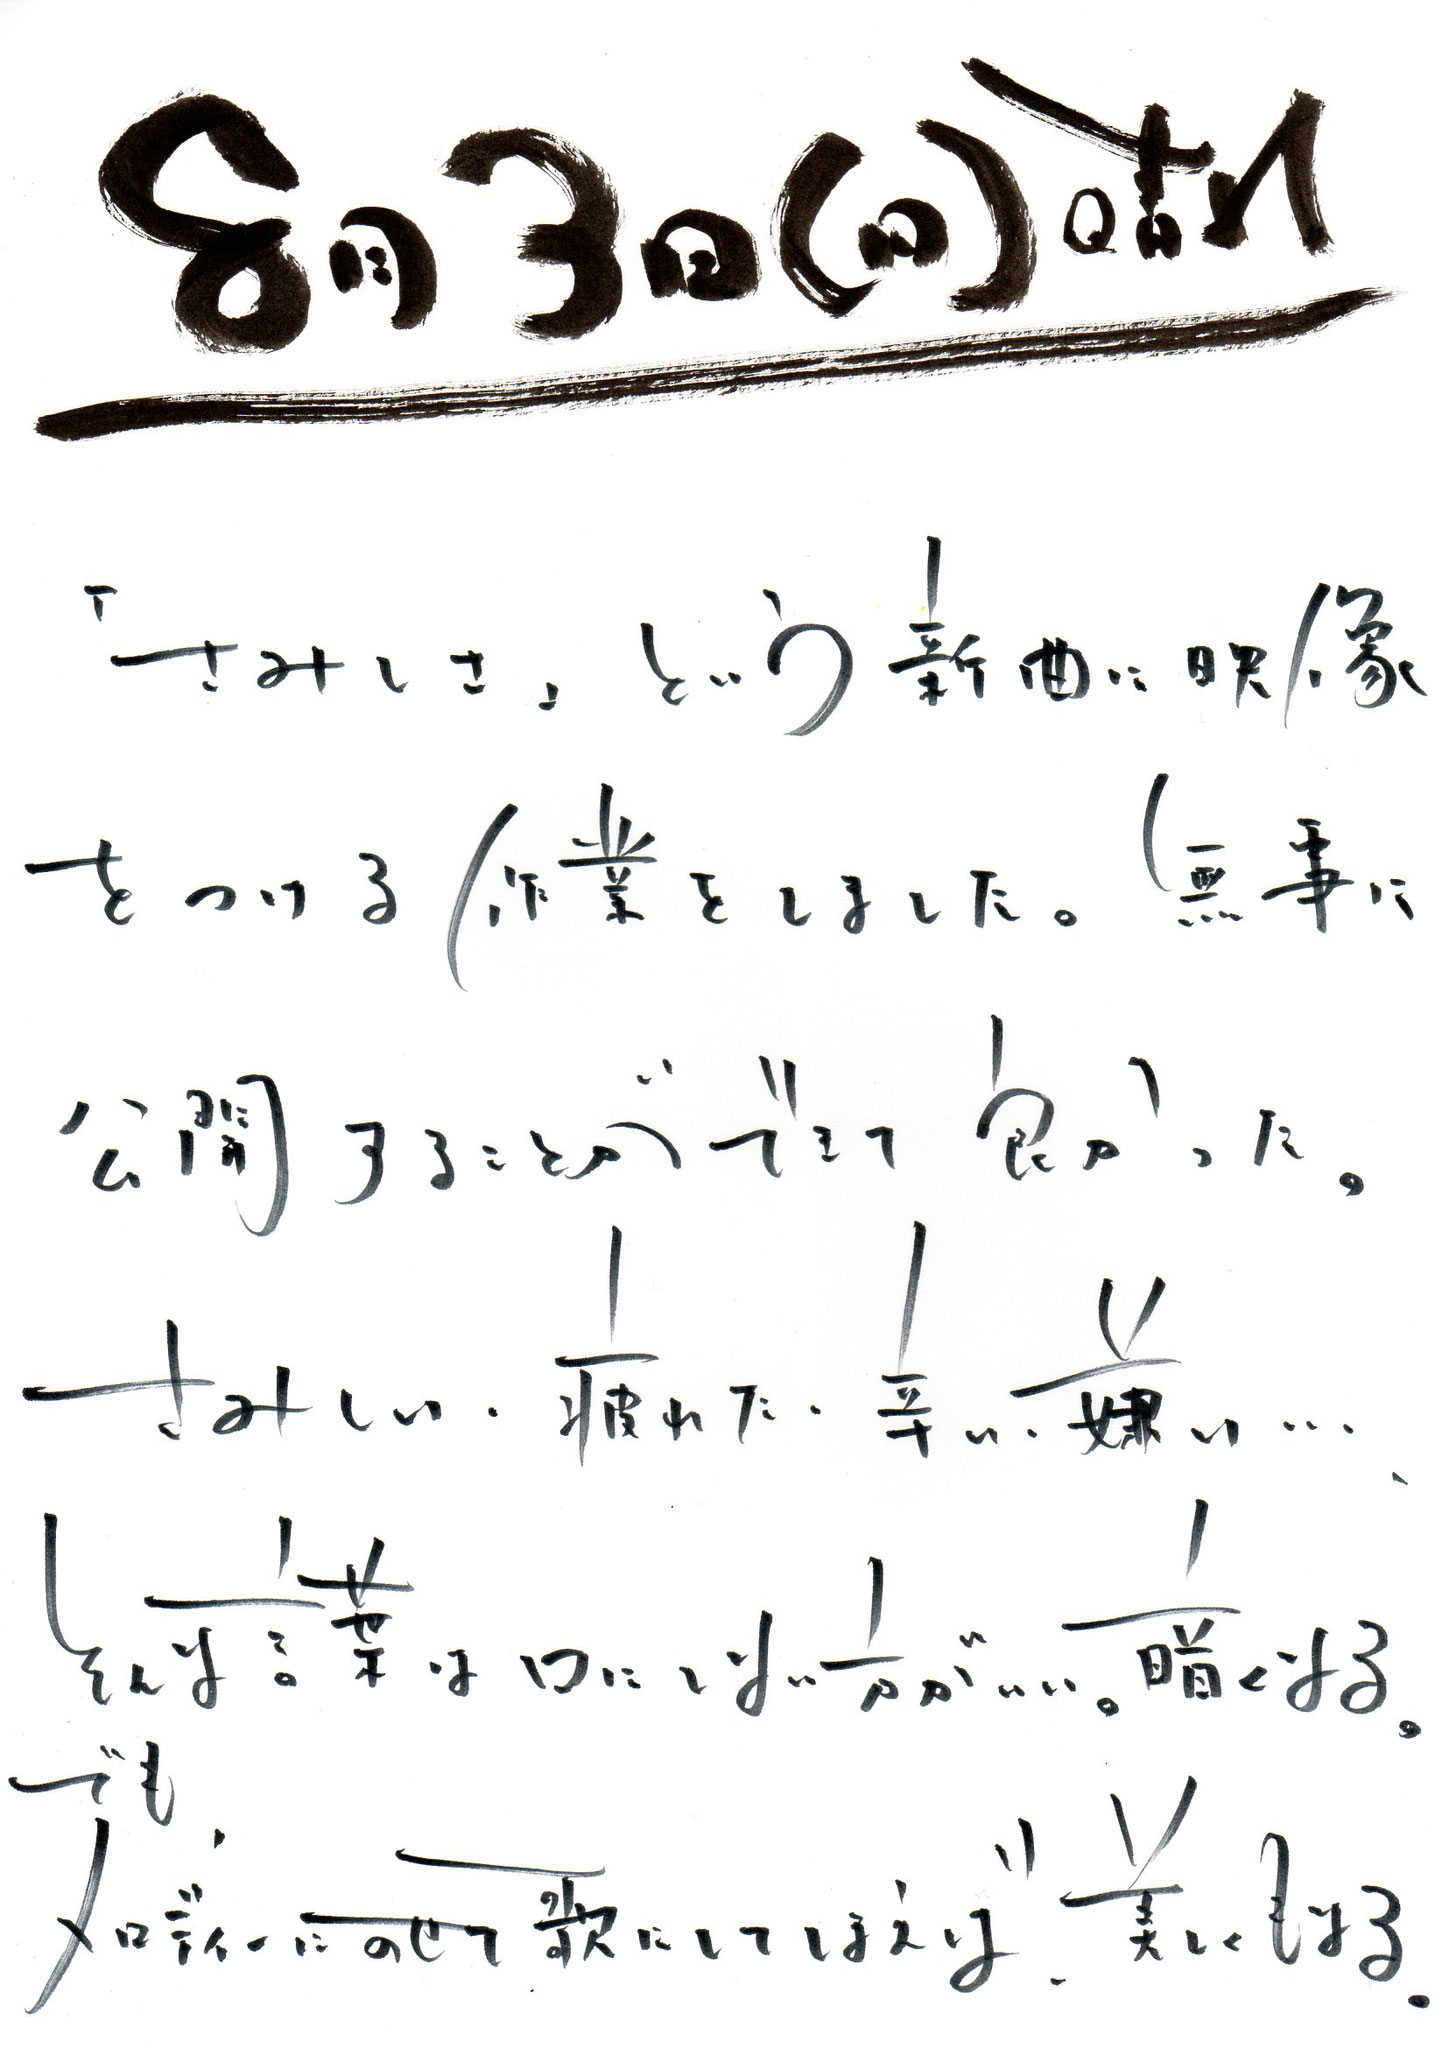 8月3日(月)晴れ
「さみしさ」という新曲に映像
をつける作業をしました。無事に
公開することができて良かった。
さみしい・疲れた・辛い・嫌い…、
そんな言葉は口にしない方がいい。暗くなる。
でも、
メロディーにのせて歌にしてしまえば、美しくもなる。